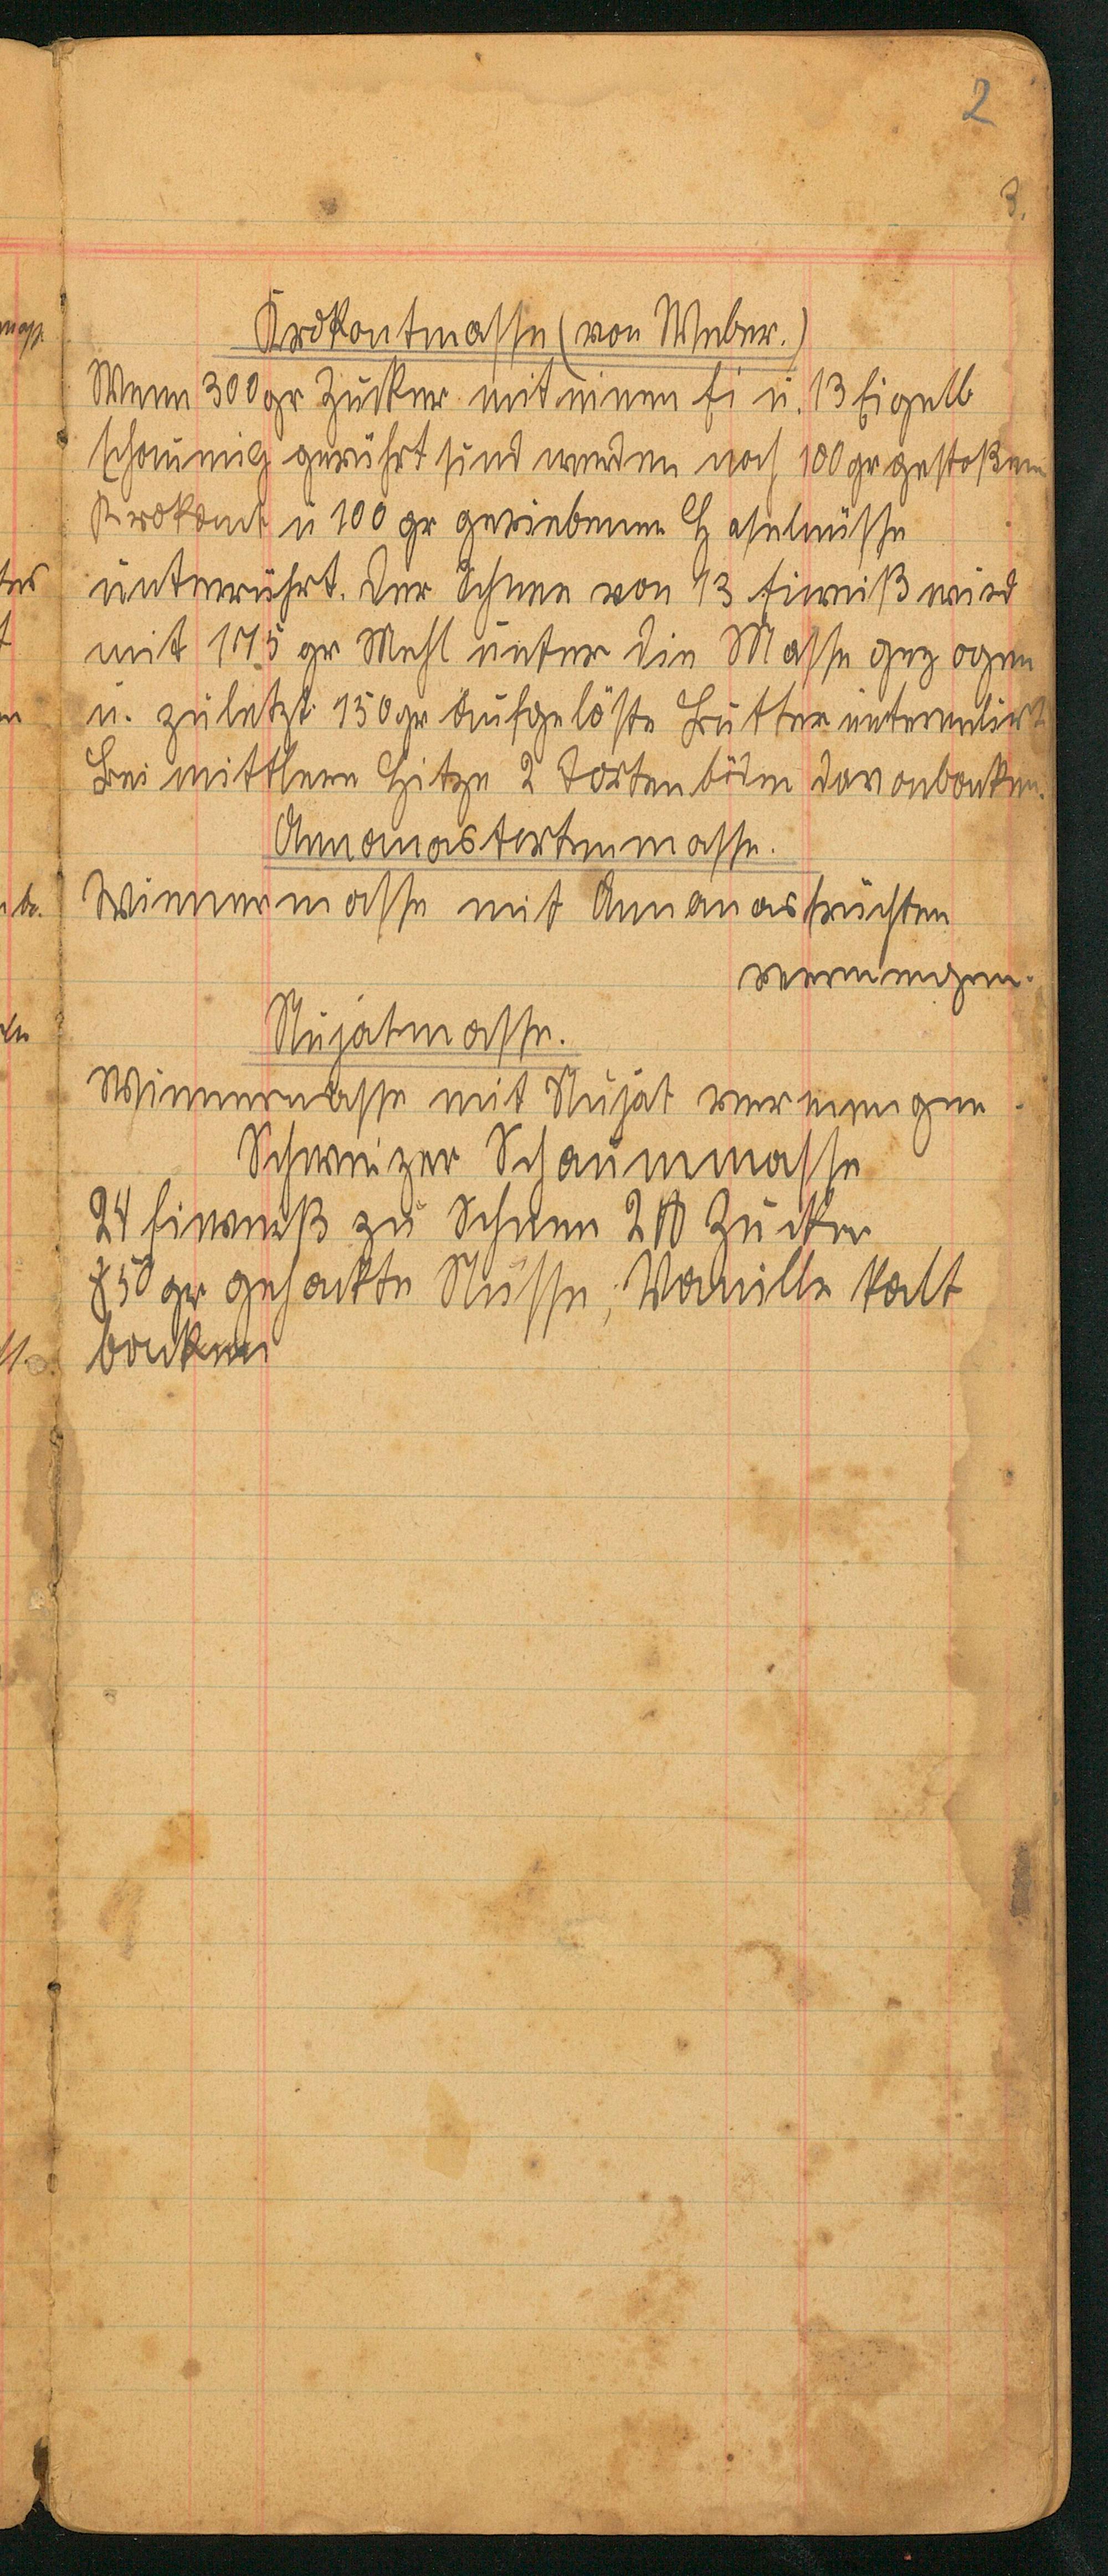 2
3.
Krokantmasse (von Weber.)
Wenn 300 gr Zucker mit einem Ei u. 13 Eigelb
schaumig gerührt sind werden noch 100 gr gestoßenen
Krokant u 100 gr geriebenen Haselnüsse
unterrührt. Der Schnee von 13 Eiweiß wird
mit 175 gr Mehl unter die Masse gezogen
u. zuletzt 150 gr aufgelöste Butter untermeliert
Bei mittlere Hitze 2 Tortenböden davonbacken.
Annanastortenmasse.
Wienermasse mit Annanasfrüchten
vermengen.
Nujatmasse.
Wienermasse mit Nujat vermengen.
Schweizer Schaummasse
24 Eiweiß zu Schnee 2 ℔ Zucker
50 gr gehackte Nüsse, Vanille kalt
backen